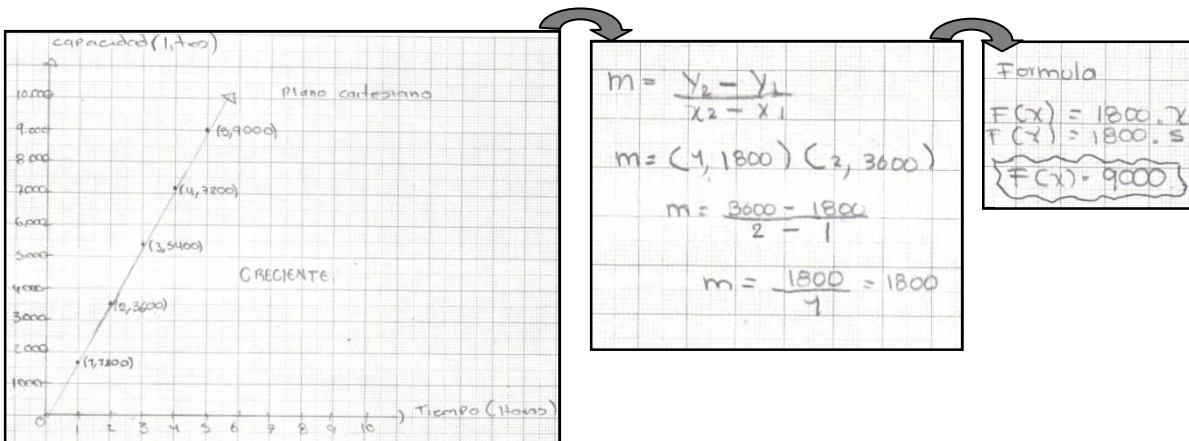 capacidad (litros)
Plano cartesiano
10.000
9.000
8000
7000
6,000
5.000
4000
3000
2000
1000
0
(5,9000)
(4,7200)
(3,5400)
(2,3600)
(1,1800)
CRECIENTE.
1 2 3 4 5 6 7 8 9 10
Tiempo (Horas)
m = Y₂ - Y₁
x₂ - x₁
m = (1, 1800) (2, 3600)
m = 3600 - 1800
2 - 1
m = 1800 = 1800
1
Formula
F(x) = 1800 . x
F(x) = 1800 . 5
F(x) = 9000